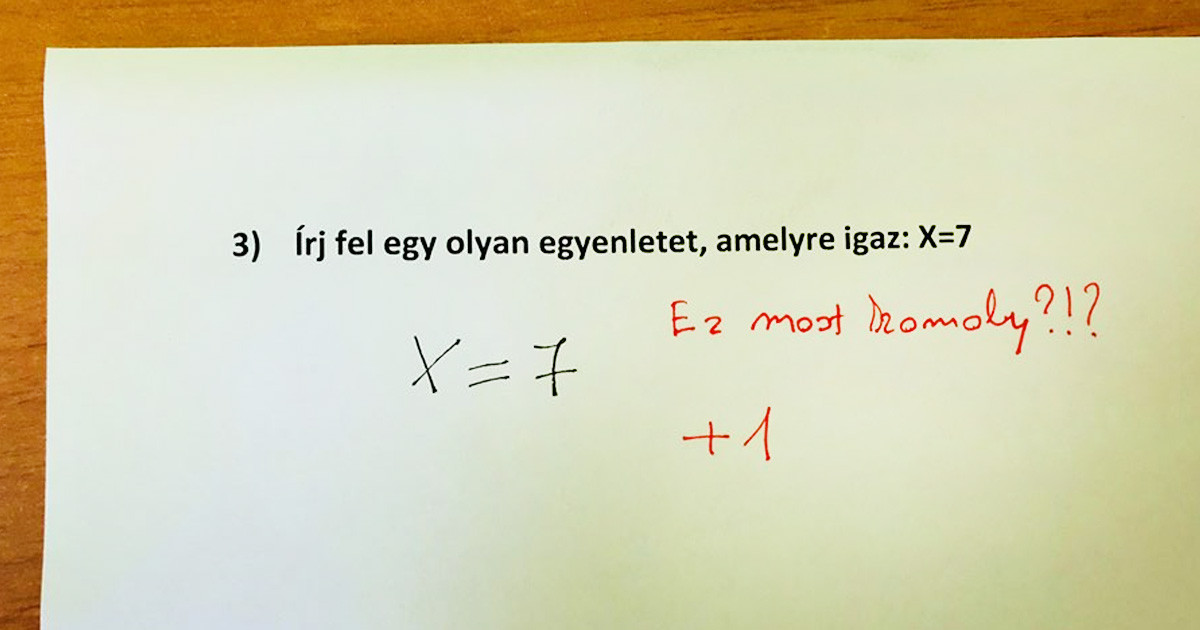 3) Írj fel egy olyan egyenletet, amelyre igaz: X=7
Ez most komoly?!?
X = 7
+1